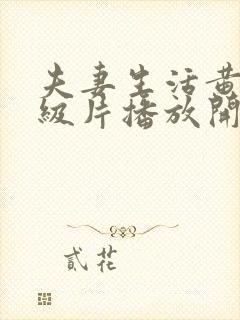 夫妻生活黄
级片播放開
貳花